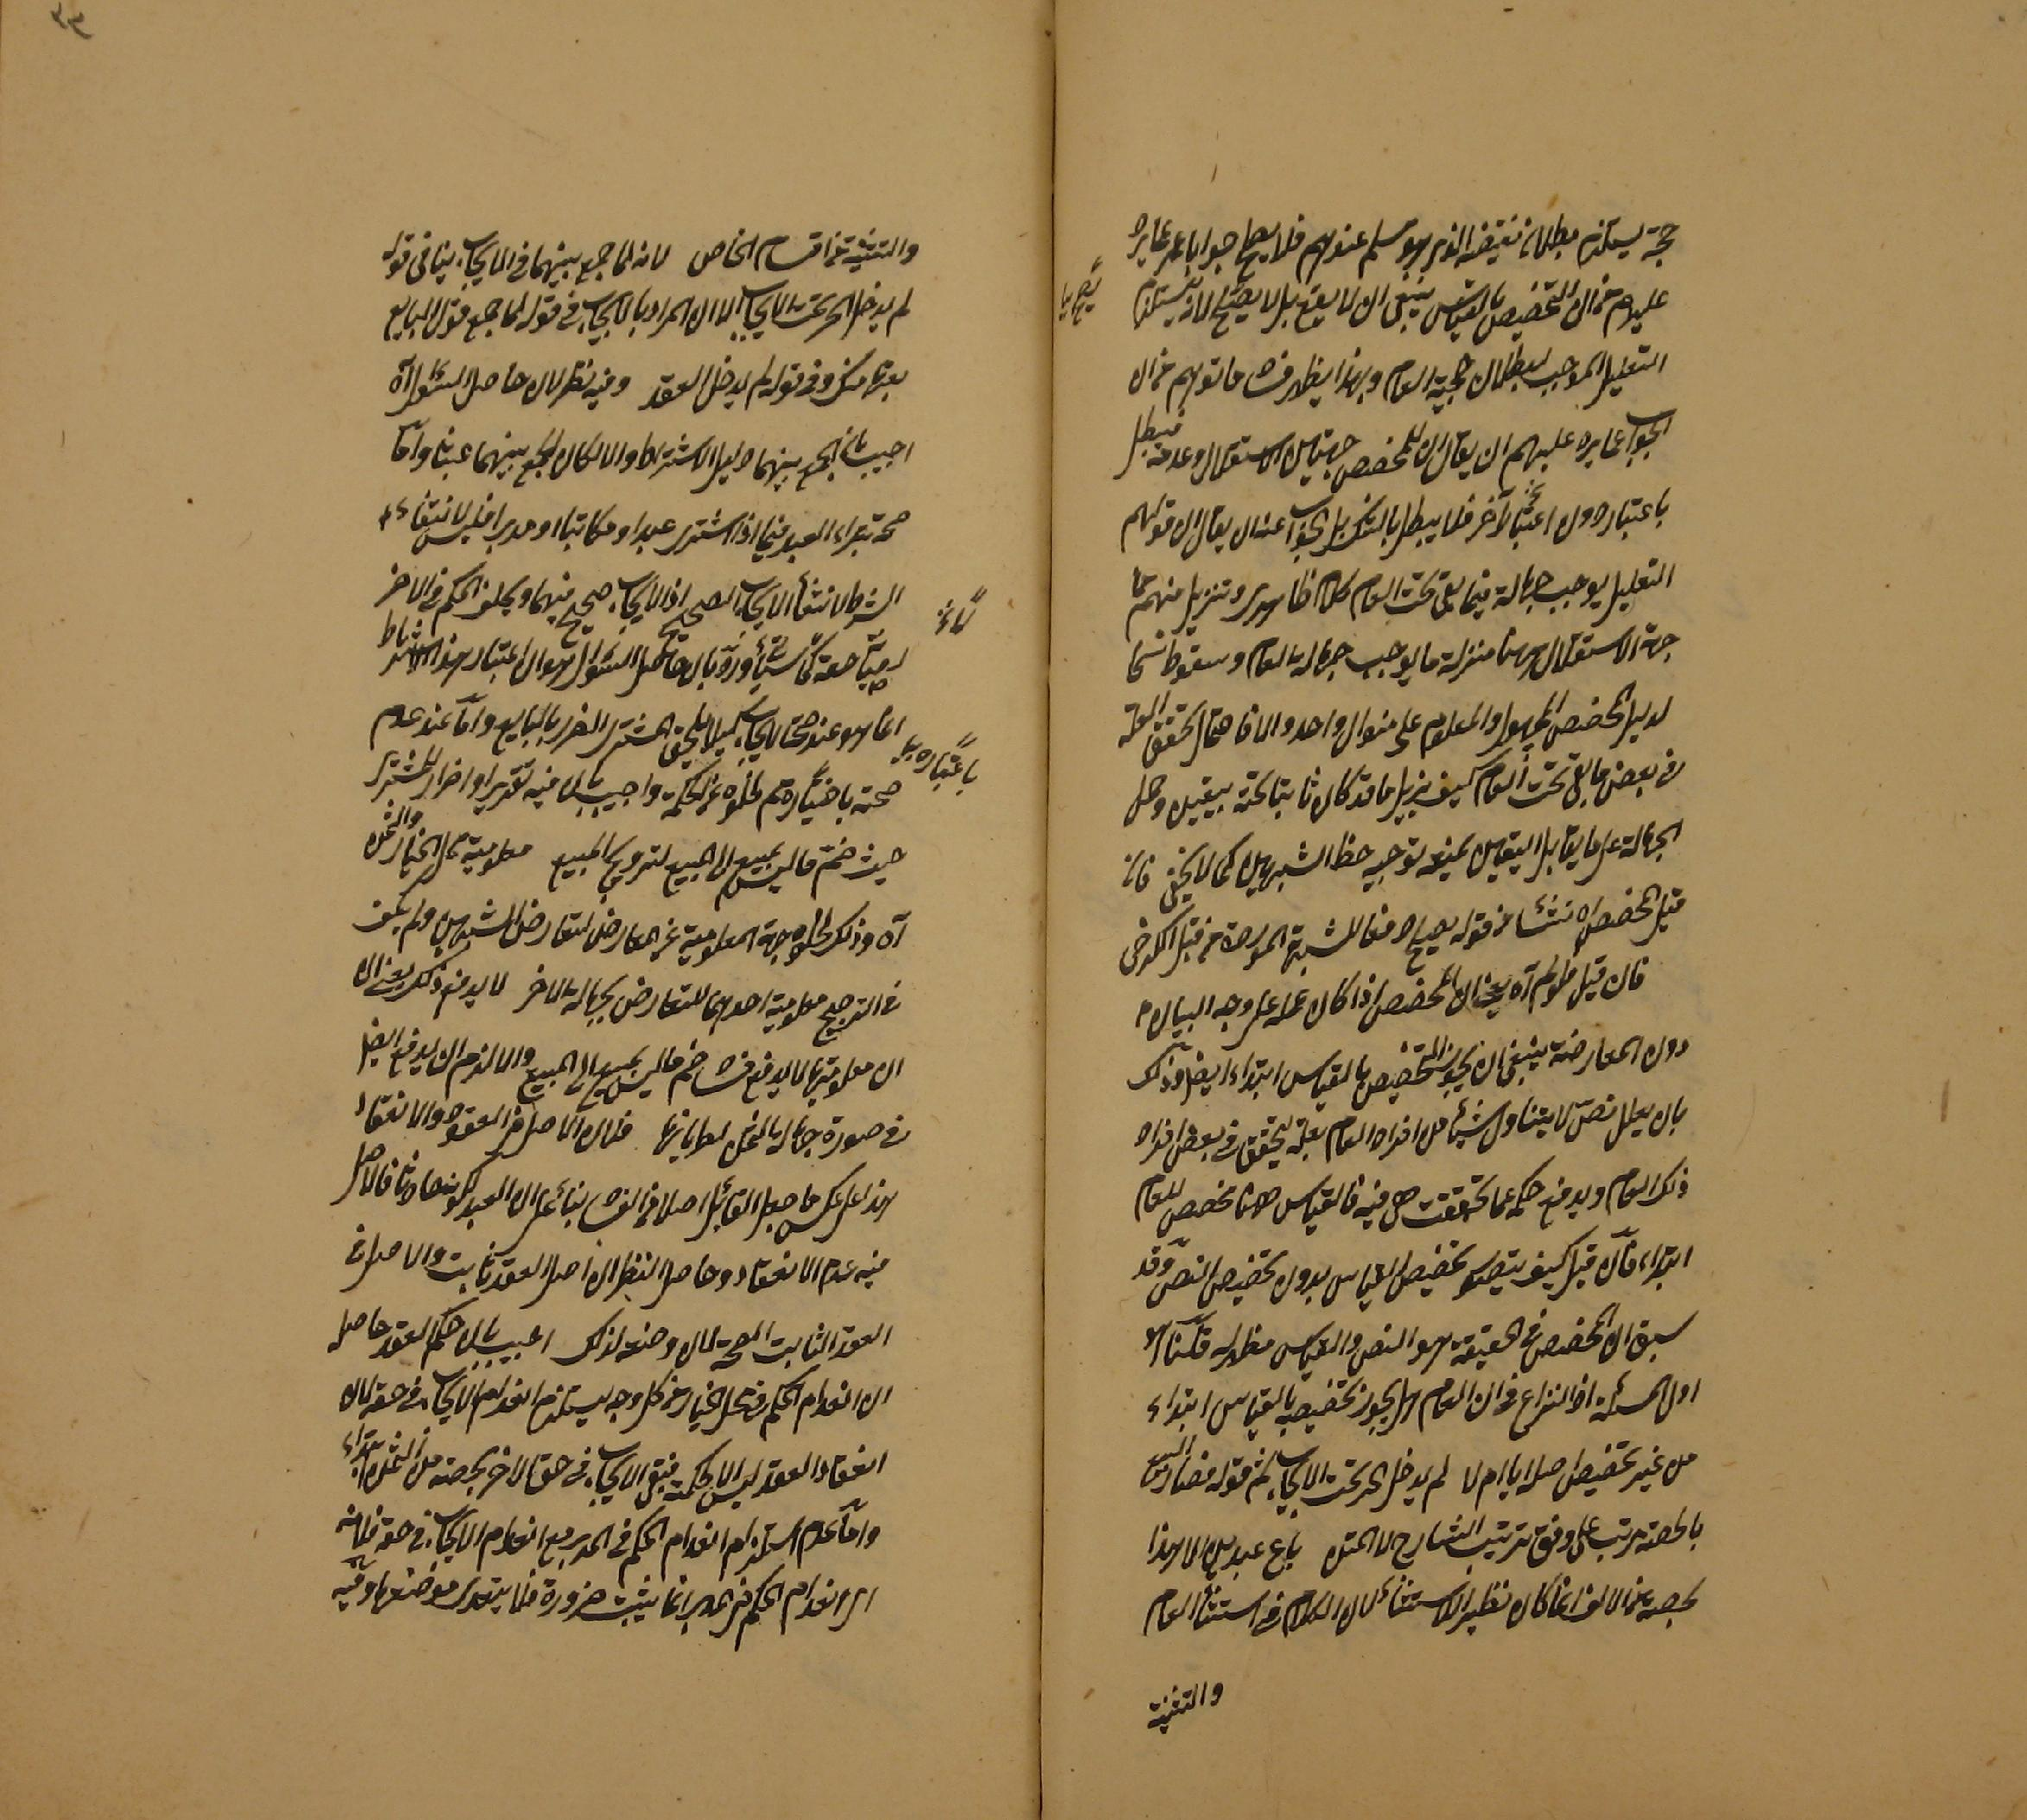 حجة يستلزم بطلان نقيضه الذي هو مسلم عندهم فلا يصلح جوابا عما يرد
عليهم من ان التخصيص بالقياس ينبغي ان لا يقع بل لا يصح لانه يستلزم
التعليل الموجب لبطلان حجية العام وبهذا يظهر فساد ما توهم من ان
الجواب عما يرد عليهم ان يقال ان للمخصص جهتين الاستقلال وعدمه فيبطل
باعتبار دون اعتبار آخر فلا يبطل بالشك بل الجواب عنه ان يقال ان قولهم
التعليل يوجب جهالة فيما بقي تحت العام كلام ظاهري وتنزيل منهم
جهة الاستقلال منزلة ما يوجب جهالة العام وسقوطا
لدليل الخصوص المجهول والمعلوم على منوال واحد والا فاحتمال تحقق العلة
في بعض ما بقي تحت العام كيف يزيل ما قد كان ثابتا تحته بيقين وحمل
الجهالة على ما يقابل اليقين يمنعه توجيه حفظ الشبهين كما لا يخفى فانه
قبل المخصص من قوله يصلح دفعا للشبهة الموردة من قبل الكرخي
فان قيل فلو لم آه يعني ان المخصص اذا كان عمله على وجه البيان
دون المعارضة ينبغي ان يجوز التخصيص بالقياس ابتداء ايضا وذلك
بان يعلل نص لا يتناول شيئا من افراد العام بعلة تتحقق في بعض افراد
ذلك العام ويدفع حكمه عما تحققت هي فيه فالقياس ههنا مخصص للعام
ابتداء فان قيل كيف يتصور تخصيص القياس بدون تخصيص النص وقد
سبق ان المخصص في الحقيقة هو النص والقياس مظهر له قلنا هو
اول المسئلة اذ النزاع في ان العام هل يجوز تخصيصه بالقياس ابتداء
من غير تخصيص اصله اياه ام لا لم يدخل الحر تحت الايجاب ثم قوله فصار البيع
بالحصة مرتب على وفق ترتيب الشارح لا المتن باع عبدين الا هذا
بحصته من الالف انما كان نظير الاستثناء لان الكلام في استثناء العام
والتثنية
والتثنية من اقسام الخاص لانه لما جمع بينهما في الايجاب ينافي قوله
لم يدخل الحر تحت الايجاب الا ان المراد بالايجاب في قوله لما جمع قول البايع
بعتهما منك وفي قوله لم يدخل العقد وفيه نظر لان حاصل السؤال آه
اجيب بان الجمع بينهما دليل الاشتراط والا لكان الجمع بينهما عبثا واما
صحة شراء العبد فيما اذا اشترى عبدا ومكاتبا او مدبرا فليس لانتفاء
الشرط لانتفاء الايجاب الصحيح اذ الايجاب صحيح فيهما ويخلف الحكم في الآخر
ورد بان حاصل السؤال هو ان اعتبار هذا الاشتراط
انما هو عند صحة الايجاب كيلا يلحق المشتري الضرر بالبايع واما عند عدم
صحته باختياره ثم لخلوه عن الحكمة واجيب بان فيه تغريرا واضرارا للمشتري
حيث ضم ما ليس بمبيع الى المبيع لترويج المبيع معلومية محل الخيار والثمن
آه وذلك لخلو جهة المعلومية عن المعارض لتعارض الشبهين ولم يكف
في الترجيح معلومية احدهما للتعارض بجهالة الآخر لا يدفع ذلك يعني ان
ان معلوميتهما لا يدفع فساد ضم ما ليس بمبيع الى المبيع والا لزم ان يدفع ايضا
في صورة جهالة الثمن لطريانها فلان الاصل في العقود والانعقاد
هذا على عكس ما جعل القائل اصلا في الفساد بناء على ان العبد لكونه حادثا فالاصل
فيه عدم الانعقاد وحاصل النظر ان اصل العقد ثابت والاصل في
العقد الثابت الصحة لان وضعه لذلك اجيب بان حكم العقد حاصله
ان انعدام الحكم في محل الخيار من كل وجه يستلزم انعدام الايجاب في حقه لان
انعقاد العقد ليس الا لحكمه فيبقى الايجاب في حق الآخر بحصته من الثمن ابتداء
واما عدم استلزام انعدام الحكم في المدبر مع انعدام الايجاب في حقه فلانه
ان انعدام الحكم في المدبر انما يثبت ضرورة فلا يتعدى موضعها وفيه